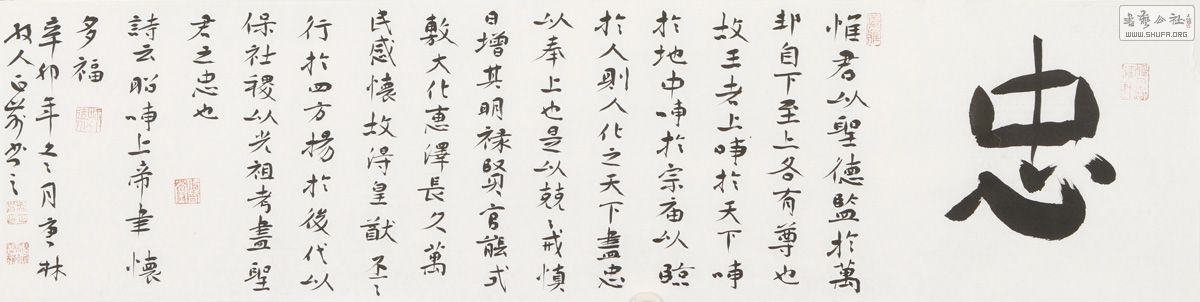 忠
惟君以聖德監於萬
邦自下至上各有尊也
故王者上事於天下事
於地中事於宗庙以臨
於人則人化之天下盡忠
以奉上也是以兢〻戒慎
日增其明禄賢官能式
敷大化惠澤長久萬
民感懷故得皇猷丕〻
行於四方揚於後代以
保社稷以光祖考盡聖
君之忠也
詩云昭事上帝聿懷
多福
辛卯年冬月 林
人 书之
書藝公社
WWW.SHUFA.ORG